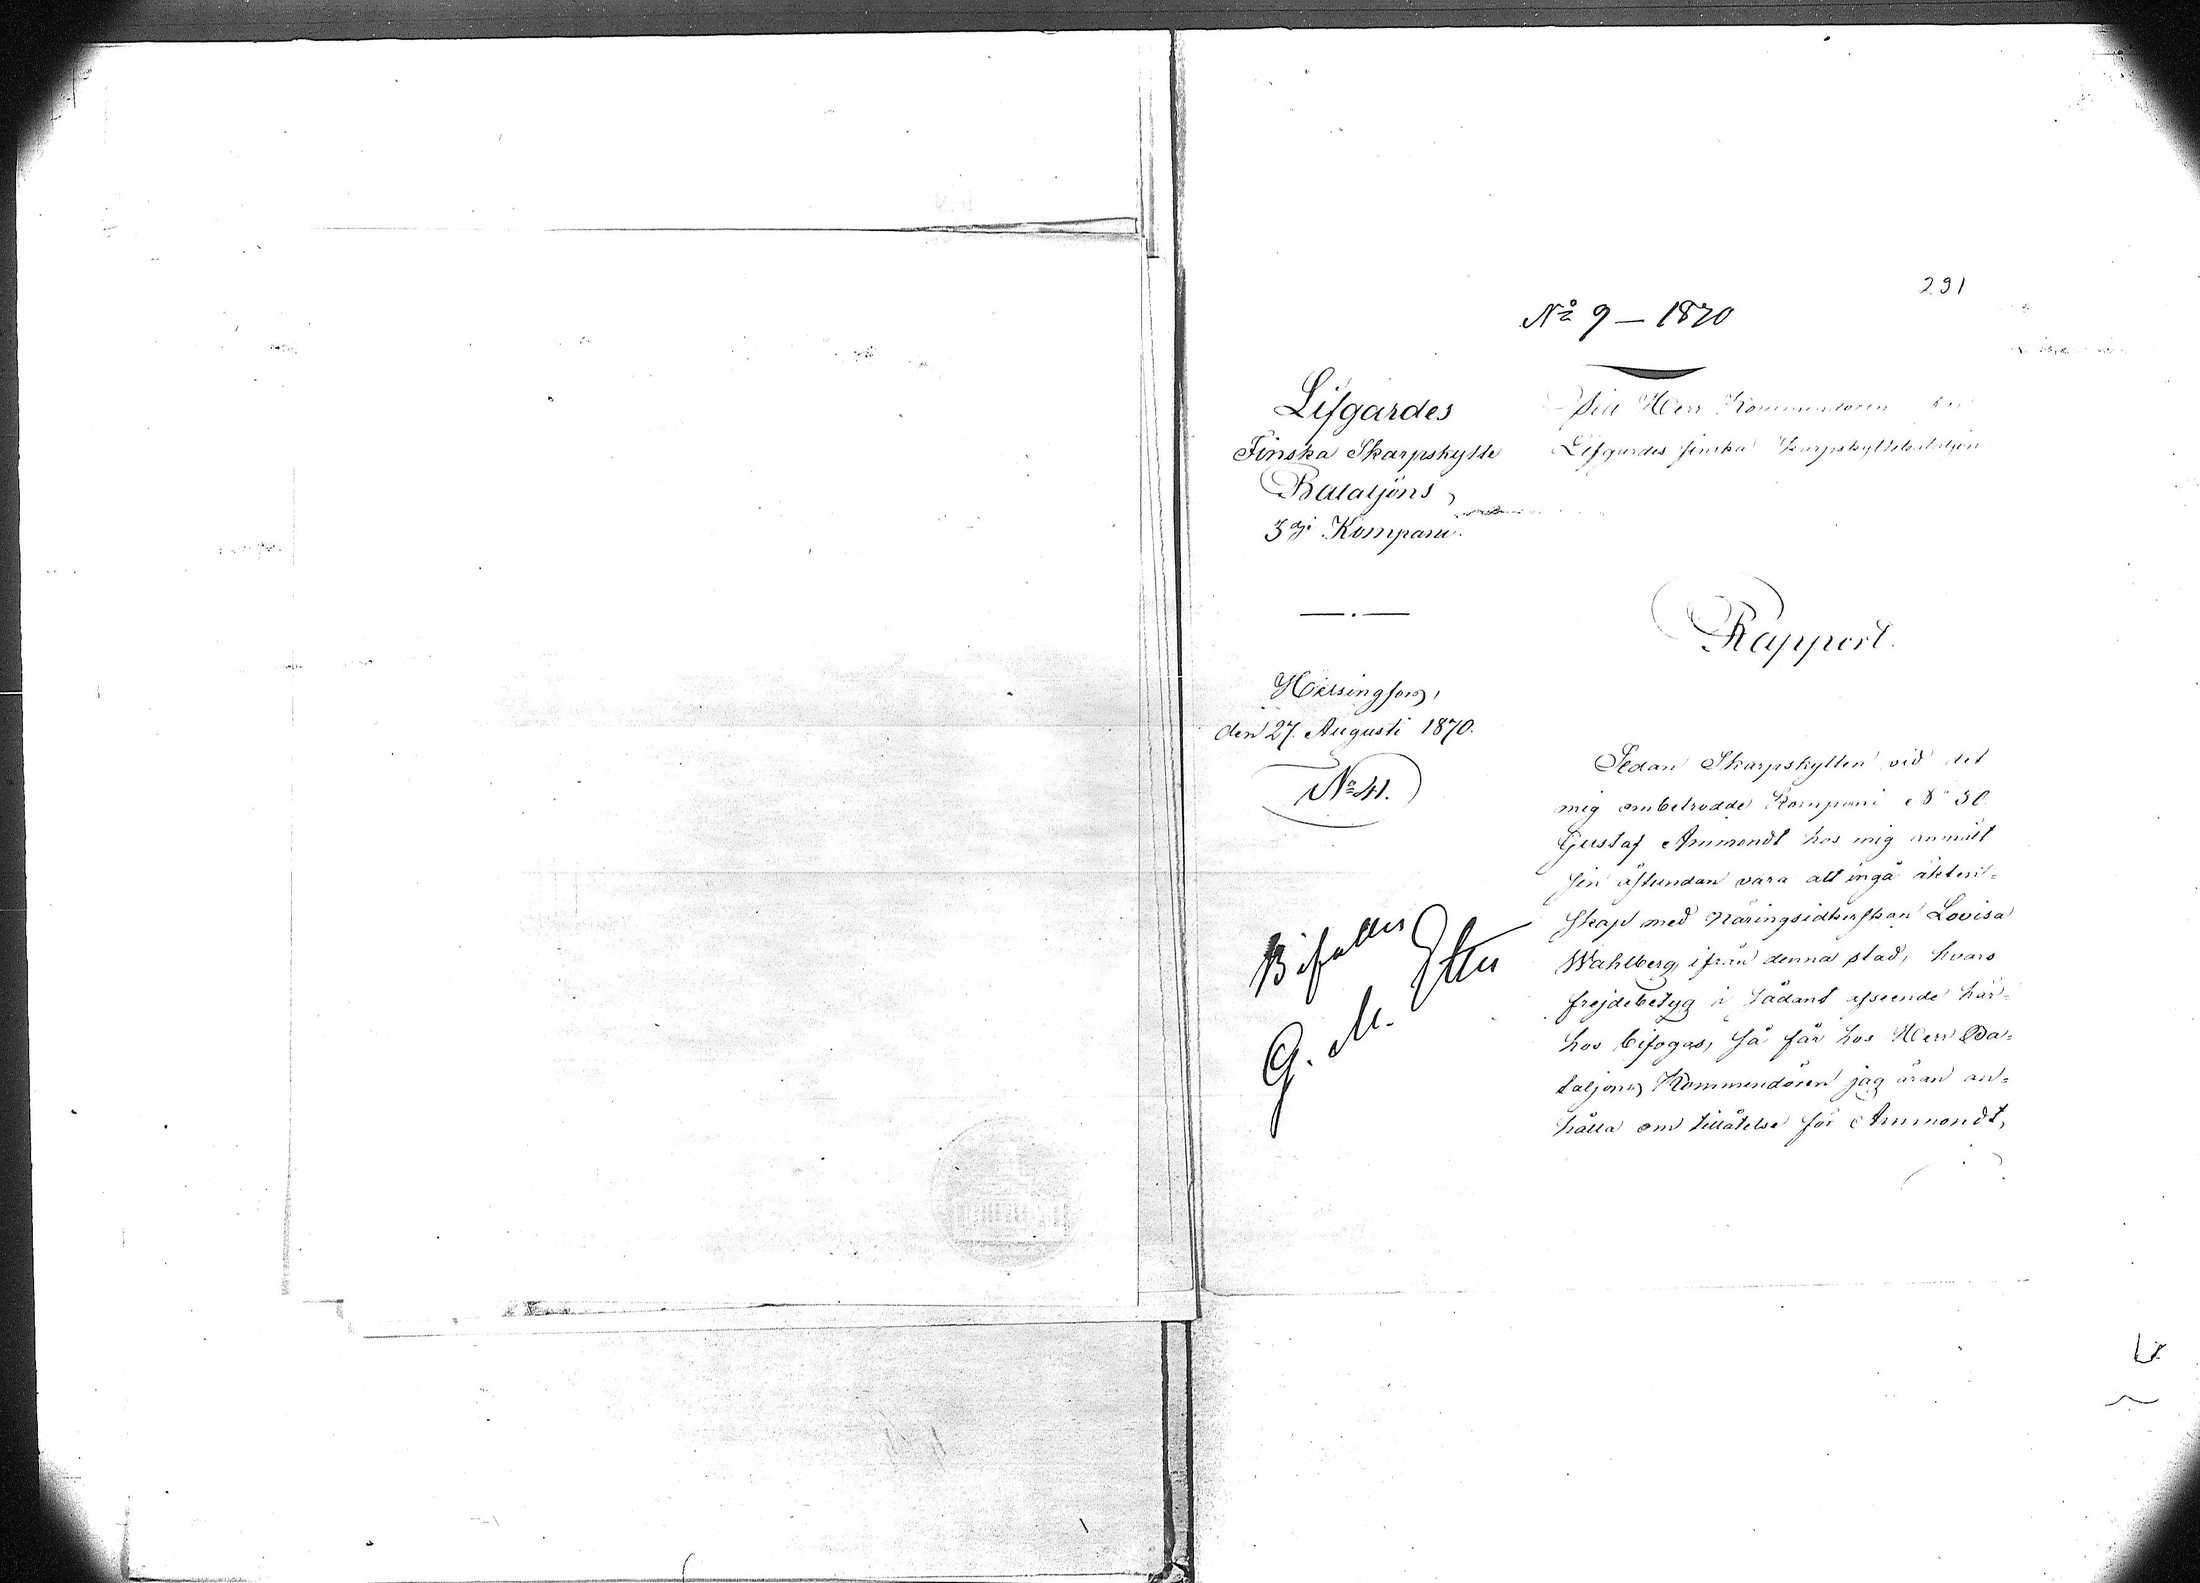 291
No 9 — 1870
Lifgardes
Finska Skarpskytte
Bataljons
3dje Kompani.
Helsingfors,
den 27. Augusti 1870.
No 41.
Bifalles
G. M. Etter
Till Herr Kommendören för
Lifgardes finska Skarpskyttebataljon
Rapport.
Sedan Skarpskytten vid det
mig ombetrodde Kompani No 30.
Gustaf Ammondt hos mig anmält
sin åstundan vara att ingå äkten=
skap med Näringsidkerskan Lovisa
Wahlberg, ifrån denna stad, hvars
frejdebetyg i sådant afseende här=
hos bifogas, så får hos Herr Ba=
taljons Kommendören jag äran an=
hålla om tillåtelse för Ammondt,